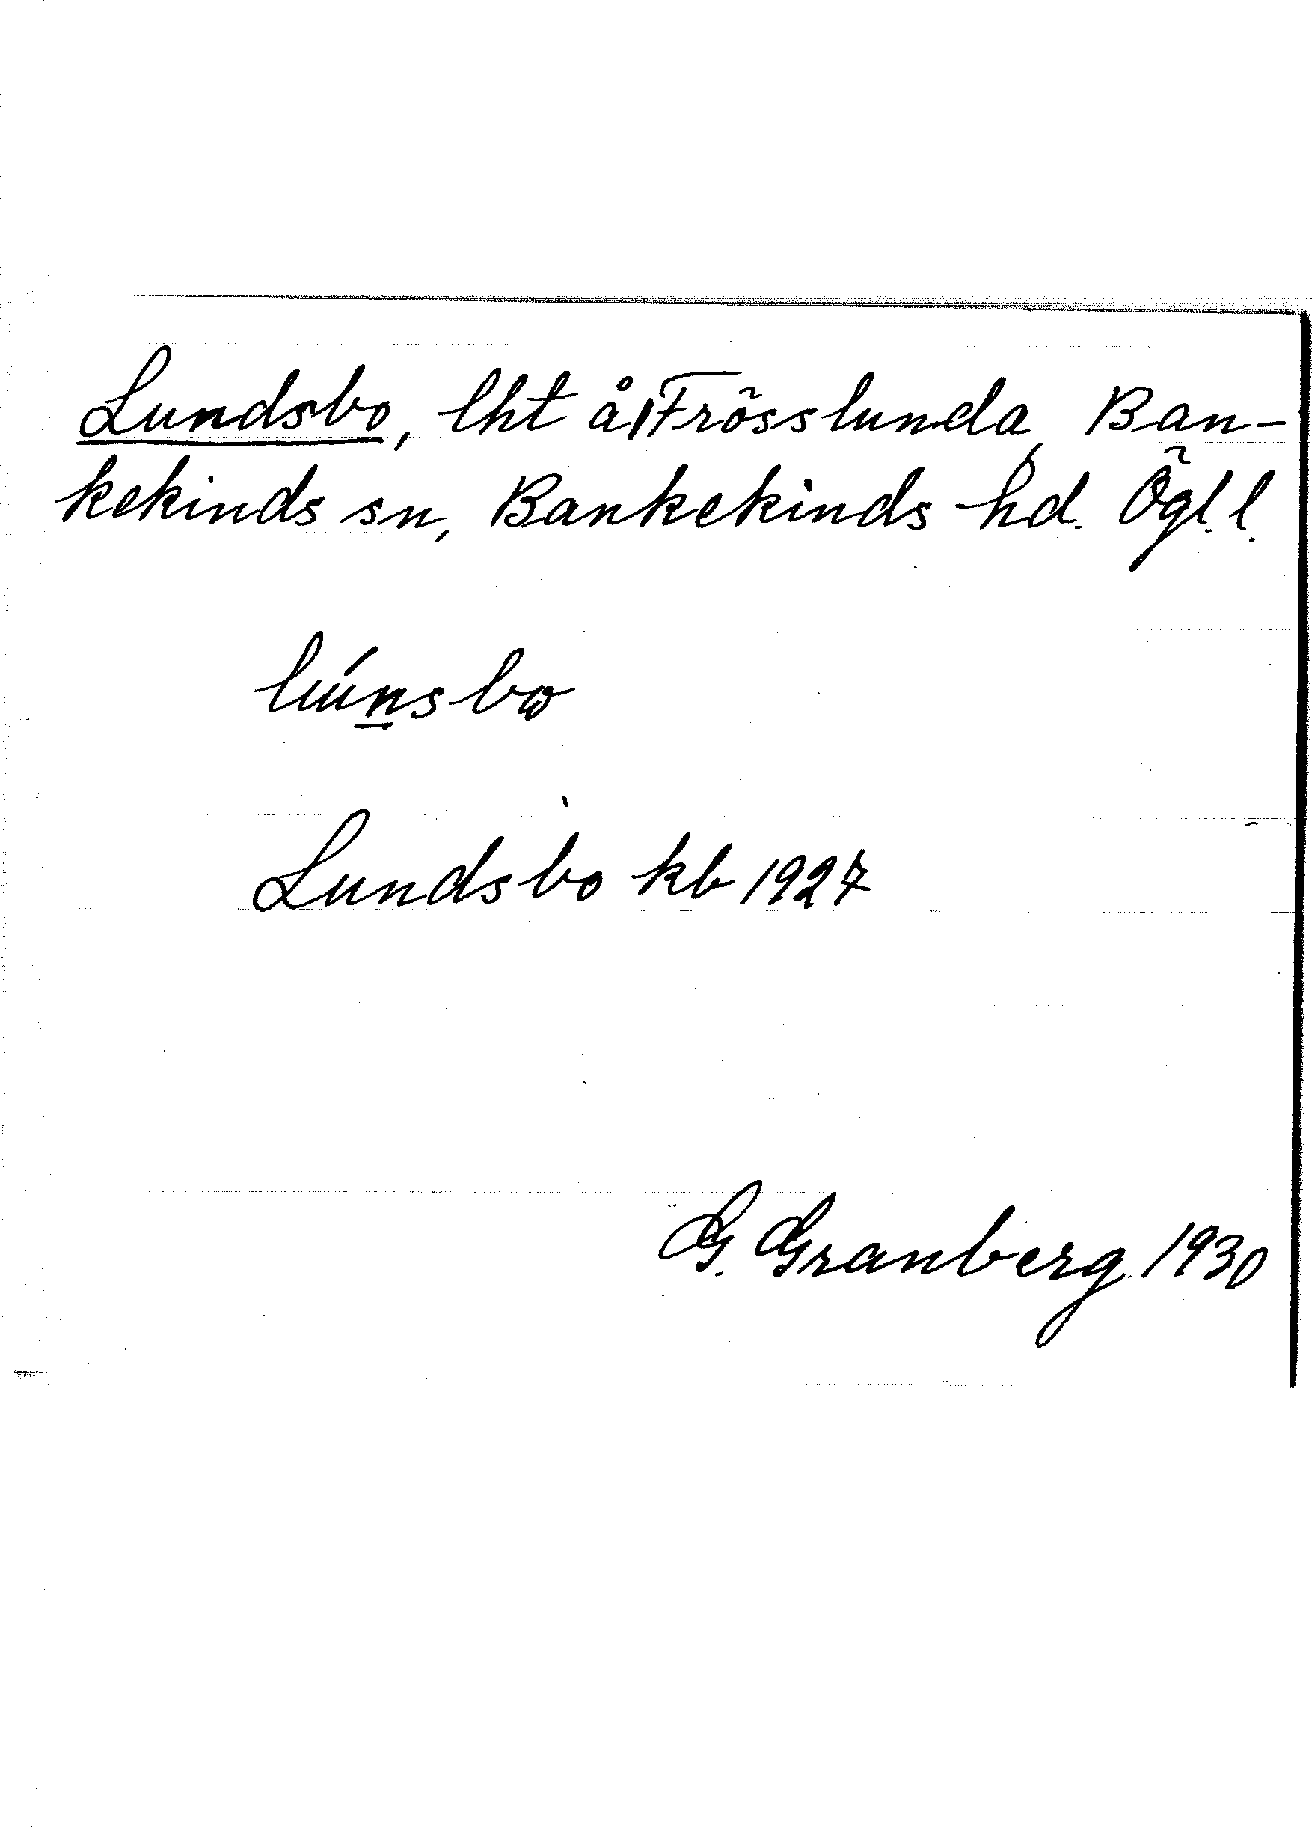 Lundsbo, lht å Frösslunda, Ban-
kekinds sn, Bankekinds hd. Ögl. l.
lúnsbo
Lundsbo kb 1927
G. Granberg 1930